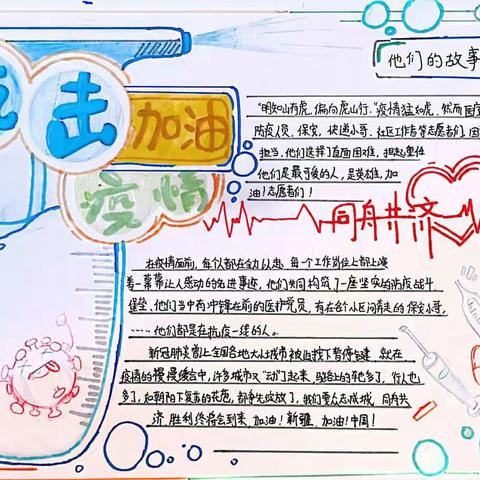 抗击
加油
疫情
他们的故事
"明知山有虎,偏向虎山行."疫情猛如虎,然而医
防疫人员、保安、快递小哥、社区工作者等志愿者们,因
担当,他们选择了直面困难,担起重任
他们是最可爱的人,是英雄,加
油!志愿者们!
同舟共济
在疫情面前,每个人都在全力以赴,每一个工作岗位上都上演
着一幕幕让人感动的先进事迹,他们共同构筑了一座坚实的防疫战斗
堡垒、他们当中有冲锋在前的医护党员,有在各个小区间奔走的保安小哥,
……他们都是在抗疫一线的人。
新冠肺炎曾让全国各地大小城市被迫按下暂停键,就在
疫情的慢慢缓和中,许多城市又"动"了起来,路上的车多了,行人也
多了,如朝阳下复苏的花苞,都争先绽放了,我们要众志成城,同舟共
济,胜利终将会到来,加油!新疆、加油!中国!